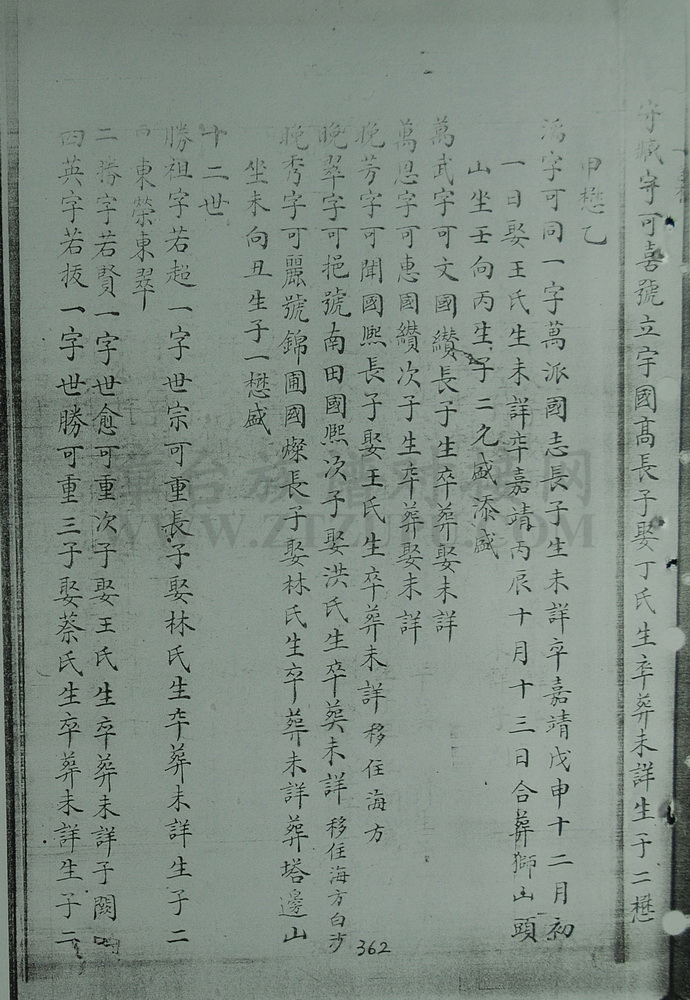 守賦字可喜號立宇國高長子娶丁氏生卒葬未詳生子二懋
申懋乙
為字可同一字萬派國志長子生未詳卒嘉靖戊申十二月初
一日娶王氏生未詳卒嘉靖丙辰十月十三日合葬獅山頭
山坐壬向丙生子二允盛添盛
萬武字可文國纘長子生卒葬娶未詳
萬恩字可惠國纘次子生卒葬娶未詳
晚芳字可聞國熙長子娶王氏生卒葬未詳移住海方
晚翠字可挹號南田國熙次子娶洪氏生卒葬未詳移住海方白沙
晚秀字可麗號錦圃國燦長子娶林氏生卒葬未詳葬塔邊山
坐未向丑生子一懋盛
十二世
勝祖字若超一字世宗可重長子娶林氏生卒葬未詳生子二
東榮東翠
二勝字若賢一字世愈可重次子娶王氏生卒葬未詳子闕
四英字若拔一字世勝可重三子娶蔡氏生卒葬未詳生子二
362
WWW.ZTZUPU.COM